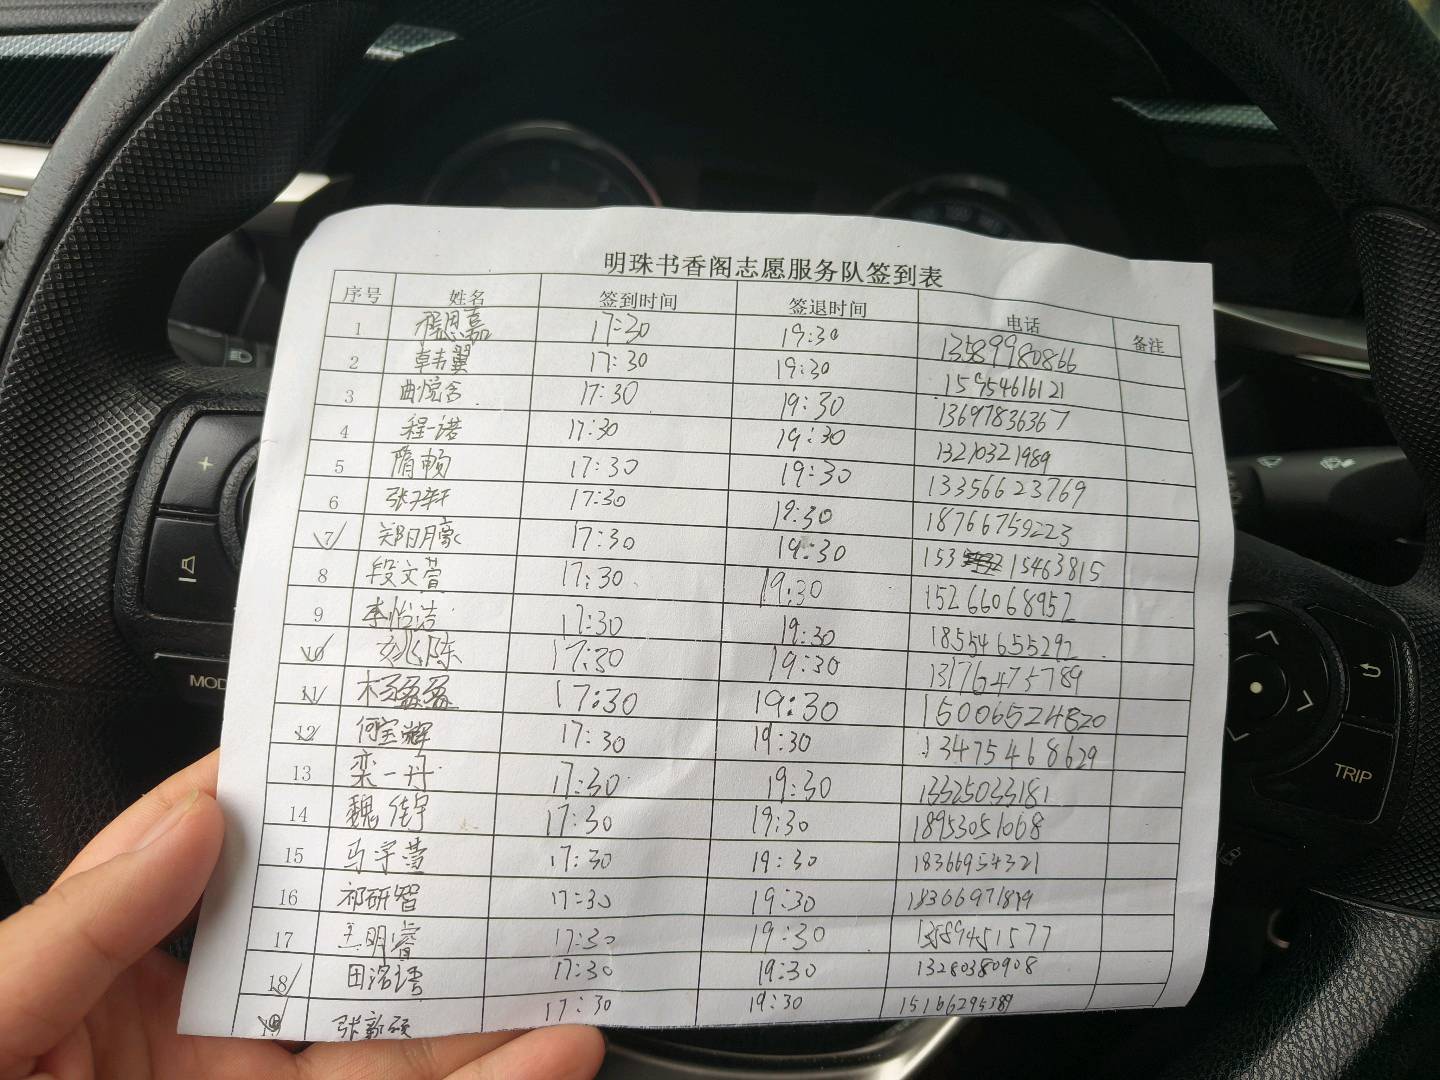 明珠书香阁志愿服务队签到表
序号 姓名 签到时间 签退时间 电话 备注
1 程恩嘉 17:30 19:30 13589980866
2 韩翼 17:30 19:30 15954616121
3 曲悦含 17:30 19:30 13697836367
4 程诺 17:30 19:30 13210321989
5 隋畅 17:30 19:30 13356623769
6 张子轩 17:30 19:30 18766759223
7 郑明豪 17:30 19:30 153 15463815
8 段文萱 17:30 19:30 15266068952
9 李怡洁 17:30 19:30 18554655292
10 17:30 19:30 13176475789
11 杨磊磊 17:30 19:30 15006524820
12 何宝辉 17:30 19:30 13475468629
13 栾一丹 17:30 19:30 13325033181
14 魏 17:30 19:30 18953051068
15 马宇萱 17:30 19:30 18366954321
16 祁研智 17:30 19:30 18366971819
17 王明睿 17:30 19:30 13589451577
18 田洺语 17:30 19:30 13280380908
19 张新硕 17:30 19:30 15166295389
MOD
TRIP